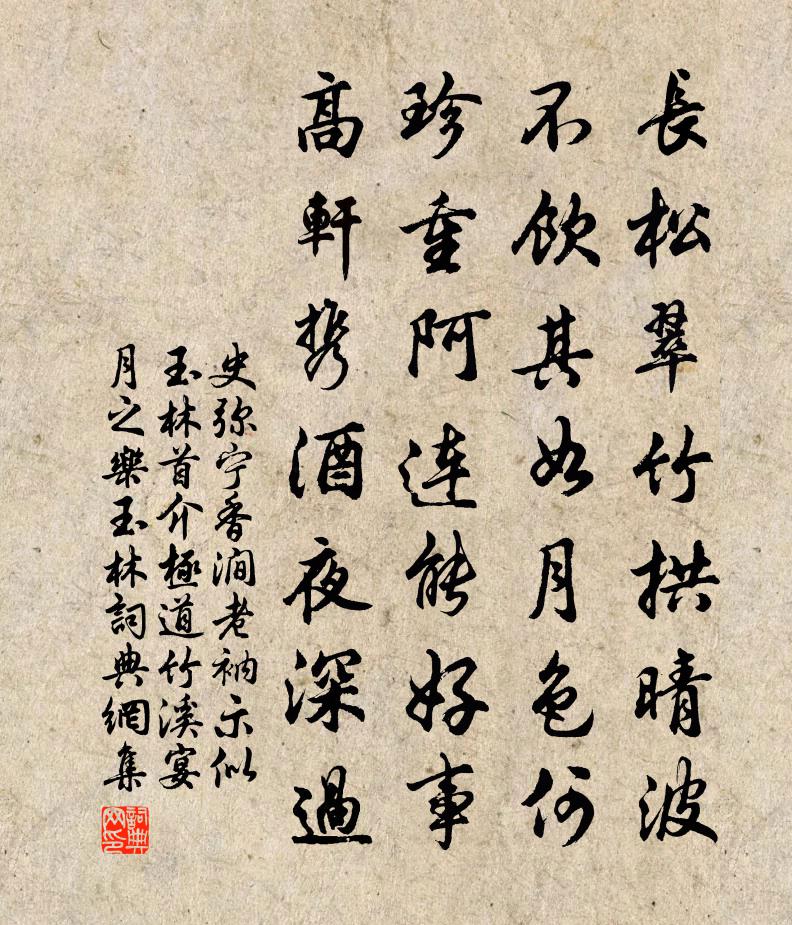 長松翠竹拱晴波
不飲其如月色何
珍重阿連能好事
高軒携酒夜深過
史弥宁香澗老衲示似
玉林首介極道竹溪宴
月之樂玉林詞典網集
詞典
网印